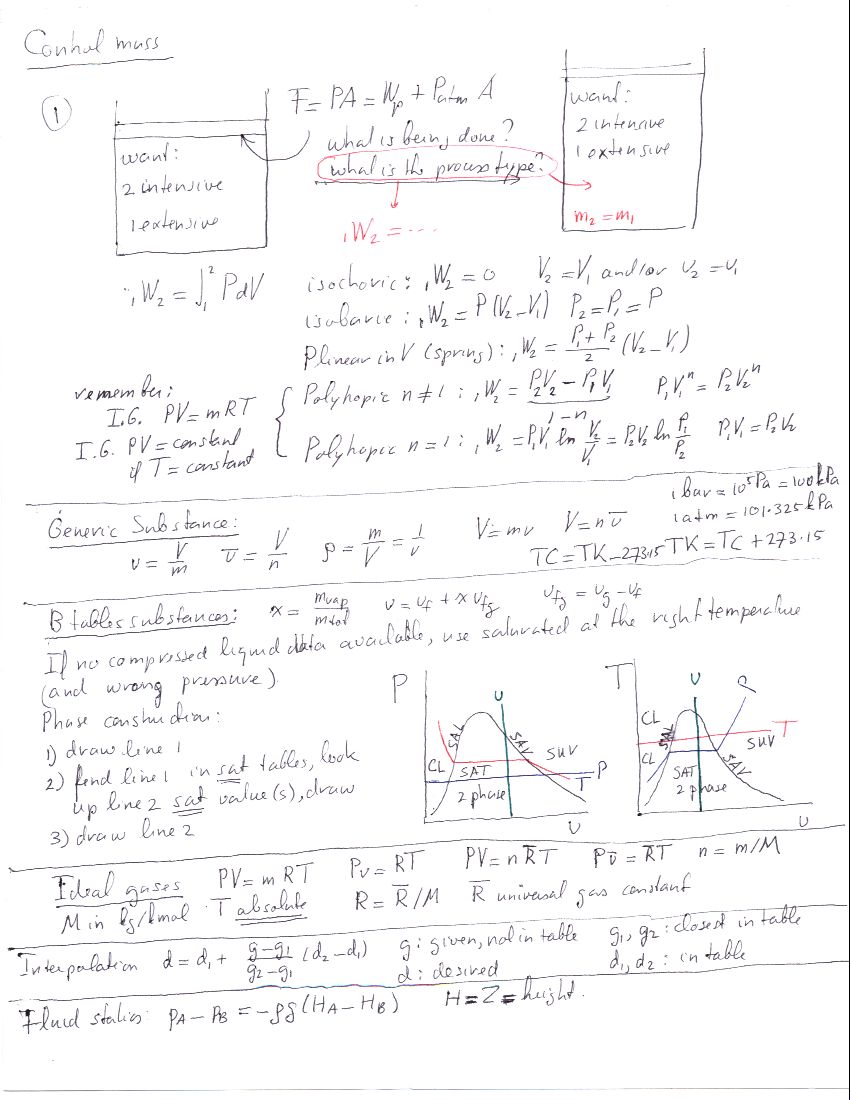 Control mass
①
want:
2 intensive
1 extensive
F = PA = Wp + Patm A
what is being done?
what is the process type?
₁W₂ = ...
want:
2 intensive
1 extensive
m₂ = m₁
₁W₂ = ∫₁² PdV
isochoric: ₁W₂ = 0 V₂ = V₁ and/or v₂ = v₁
isobaric: ₁W₂ = P(V₂ - V₁) P₂ = P₁ = P
P linear in V (spring): ₁W₂ = (P₁ + P₂)/2 (V₂ - V₁)
remember:
I.G. PV = mRT
I.G. PV = constant
if T = constant
Polytropic n ≠ 1: ₁W₂ = (P₂V₂ - P₁V₁)/(1-n) P₁V₁ⁿ = P₂V₂ⁿ
Polytropic n = 1: ₁W₂ = P₁V₁ ln V₂/V₁ = P₂V₂ ln P₁/P₂ P₁V₁ = P₂V₂
Generic Substance:
v = V/m v̅ = V/n ρ = m/V = 1/v V = mv V = nv̅
1 bar = 10⁵ Pa = 100 kPa
1 atm = 101.325 kPa
TC = TK - 273.15 TK = TC + 273.15
B tables substances: x = mvap/mtot v = vf + x vfg vfg = vg - vf
If no compressed liquid data available, use saturated at the right temperature
(and wrong pressure)
Phase construction:
1) draw line 1
2) find line 1 in sat tables, look
up line 2 sat value(s), draw
3) draw line 2
P
v
SAL
SAV
CL
SAT
SUV
2 phase
P
T
v
T
v
P
CL
SAL
T
SUV
CL
SAT
SAV
2 phase
v
Ideal gases PV = mRT Pv = RT PV = nR̅T Pv̅ = R̅T n = m/M
M in kg/kmol T absolute R = R̅/M R̅ universal gas constant
Interpolation d = d₁ + (g-g₁)/(g₂-g₁) (d₂-d₁) g: given, not in table g₁, g₂: closest in table
d: desired d₁, d₂: in table
Fluid statics: pA - pB = -ρg(HA - HB) H = Z = height.